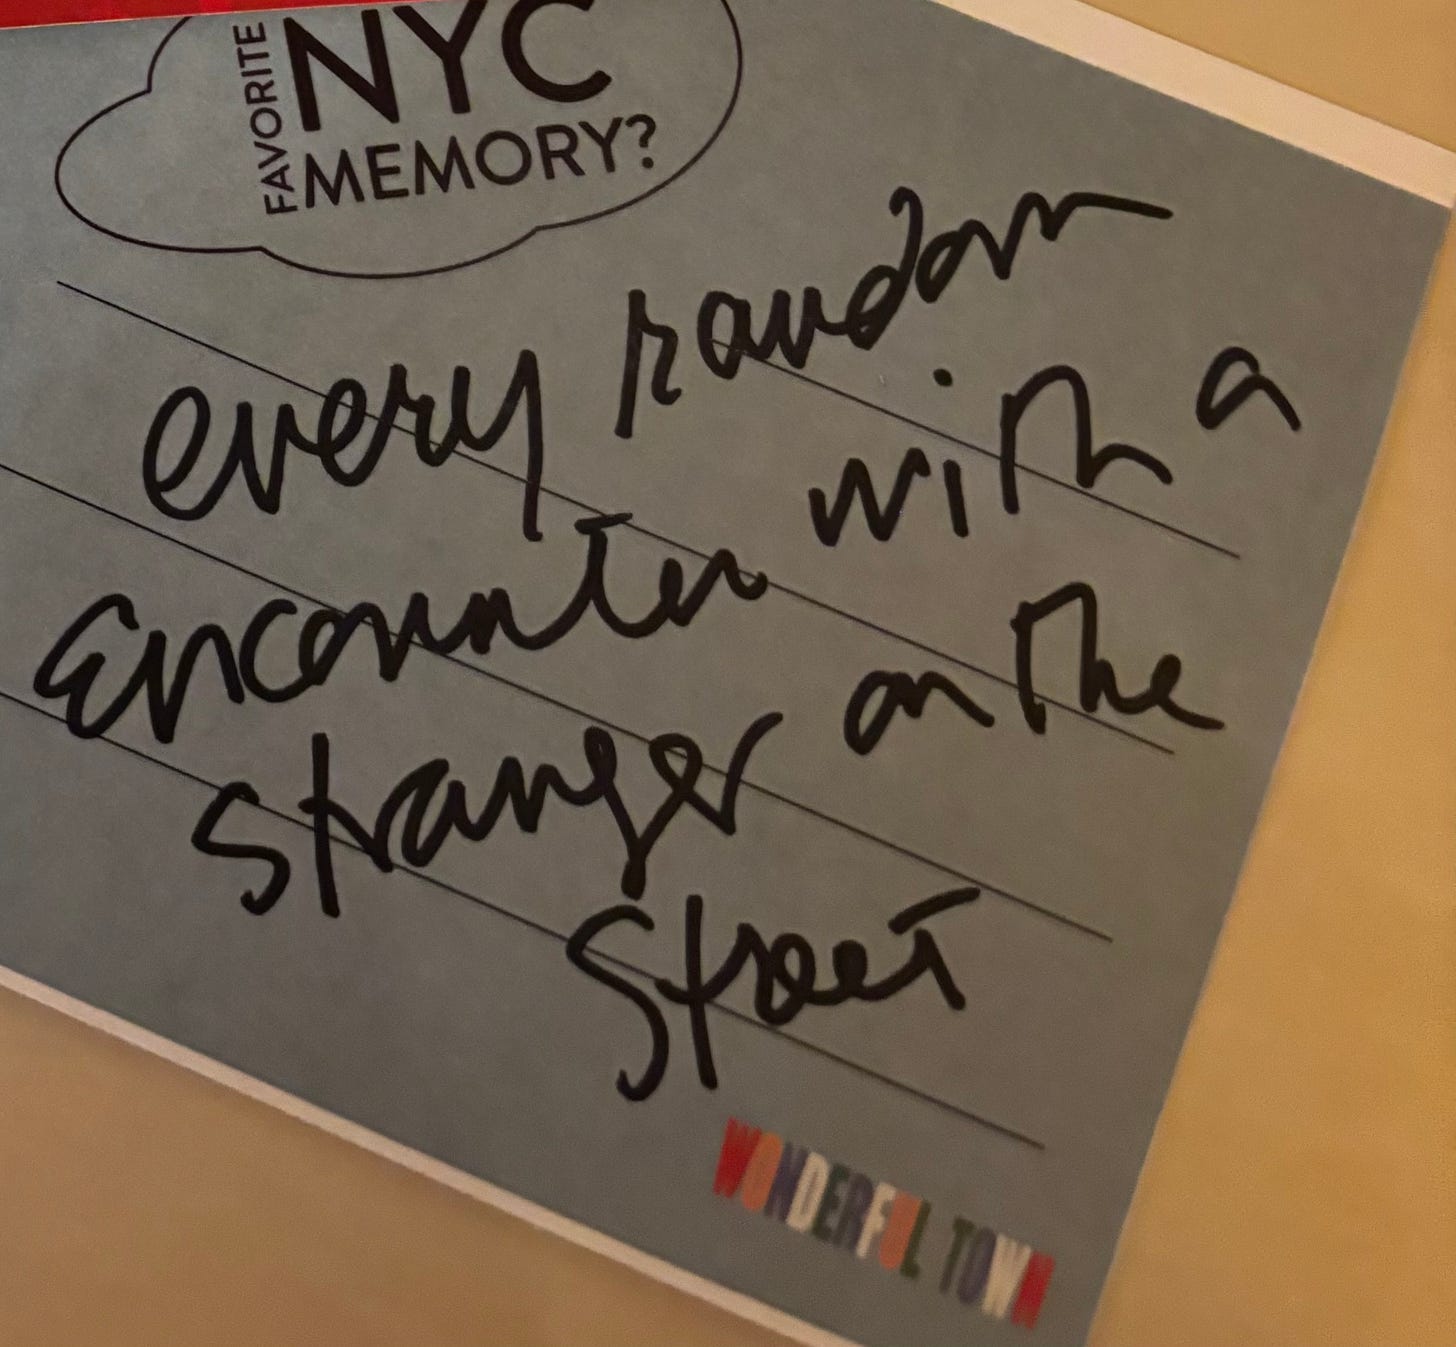 FAVORITE
NYC
MEMORY?
every random
Encounter with a
stranger on the
street
WONDERFUL TOWN